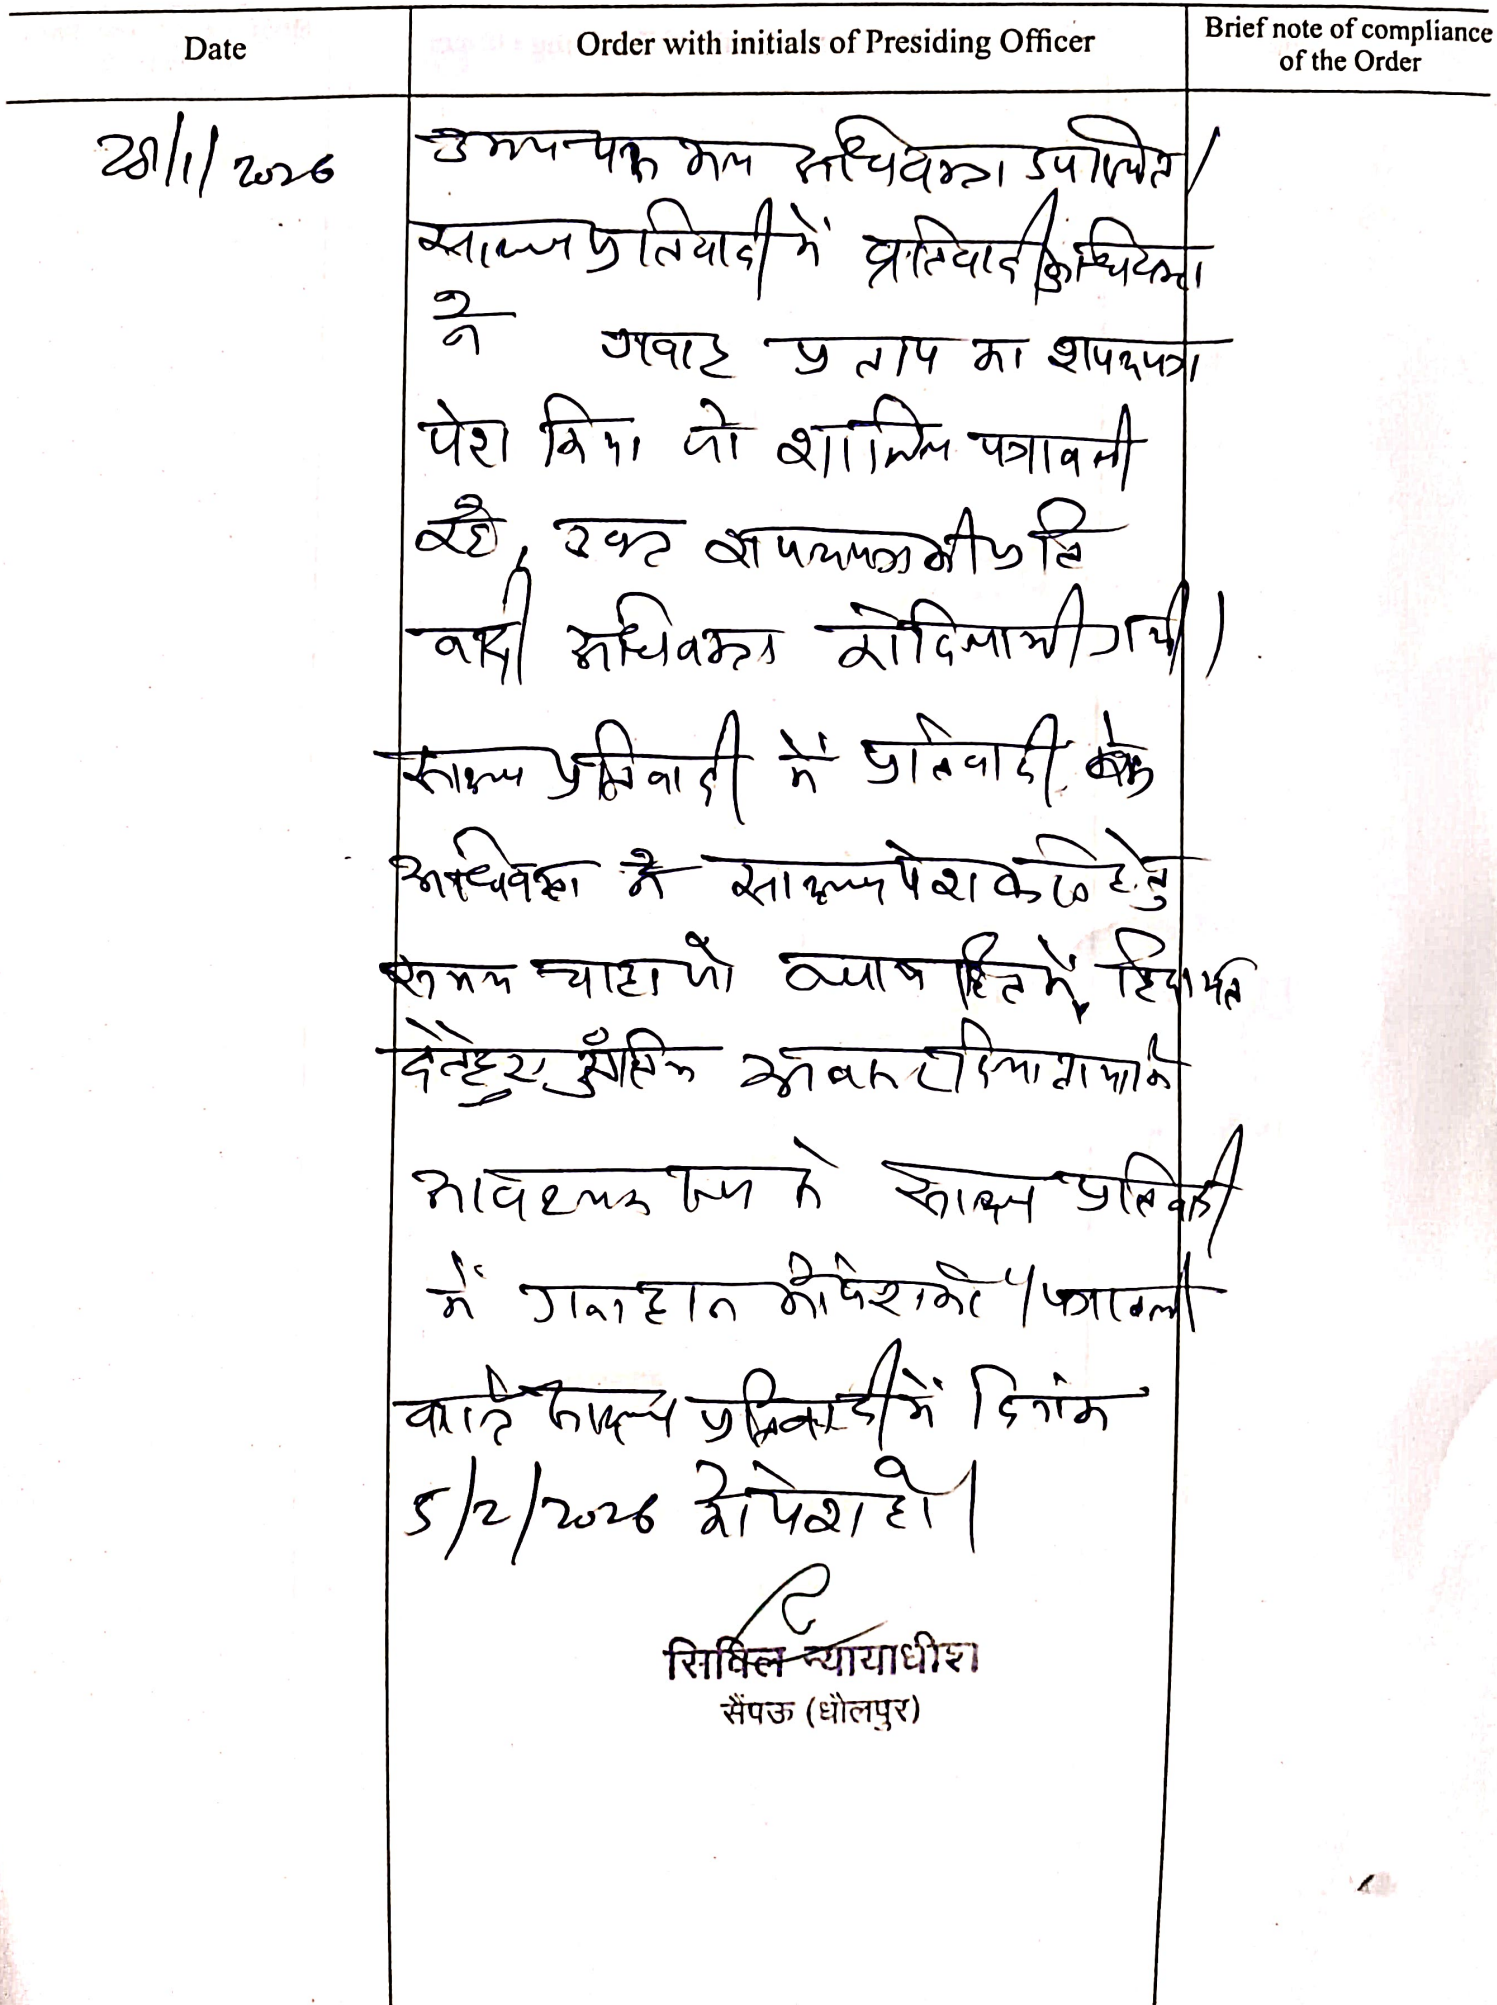 Date
Order with initials of Presiding Officer
Brief note of compliance
of the Order
28/1/2026
उभयपक्ष मय अधिवक्ता उपस्थित।
साक्ष्य प्रतिवादी में प्रतिवादी अधिवक्ता
ने गवाह प्रताप का शपथपत्र
पेश किया जो शामिल पत्रावली
रहे, उक्त शपथपत्र की प्रति
वादी अधिवक्ता को दिलायी गयी।
साक्ष्य प्रतिवादी में प्रतिवादी
अधिवक्ता ने साक्ष्य पेश करने हेतु
समय चाहा जो न्याय हित में, हिदायत
देते हुए अंतिम अवसर दिया गया कि
आवश्यक रूप से साक्ष्य प्रतिवादी
में गवाहान को पेश करें। पत्रावली
वास्ते साक्ष्य प्रतिवादी में दिनांक
5/2/2026 को पेश हो।
सिविल न्यायाधीश
सैंपऊ (धौलपुर)